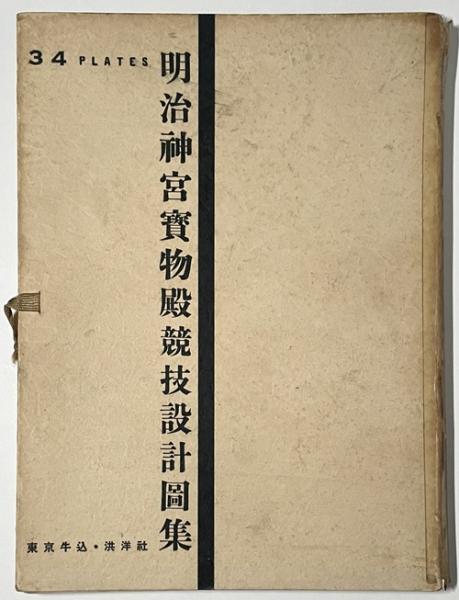 34 PLATES
明治神宮寳物殿競技設計圖集
東京牛込・洪洋社